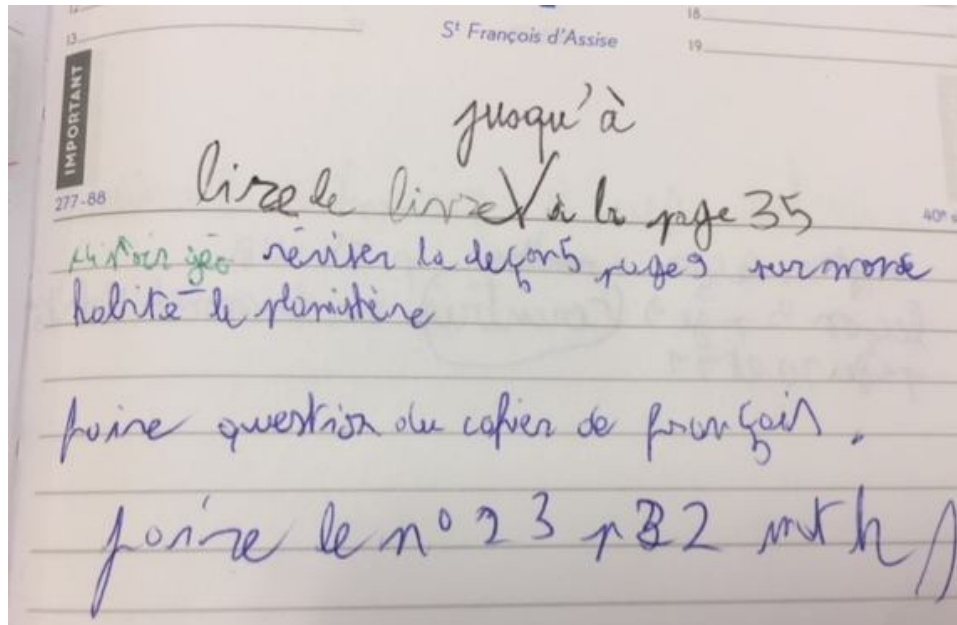 13
St François d'Assise
18
19
IMPORTANT
jusqu'à
lire le livre V à la page 35
277-88
40e
histoir géo réviser la leçon 5 page 9 sur monde
habité le planisfère
faire question du cahier de françois.
faire le n° 23 p32 mth